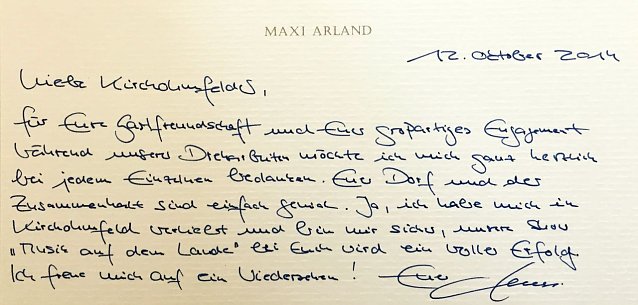 MAXI ARLAND
12. Oktober 2014
Liebe Kirchohmsfelder,
für Eure Gastfreundschaft und Euer großartiges Engagement
während unserer Dreharbeiten möchte ich mich ganz herzlich
bei jedem Einzelnen bedanken. Euer Dorf und der
Zusammenhalt sind einfach genial. Ja, ich habe mich in
Kirchohmsfeld verliebt und bin mir sicher, unsere Show
„Musik auf dem Lande“ bei Euch wird ein voller Erfolg.
Ich freue mich auf ein Wiedersehen! Euer